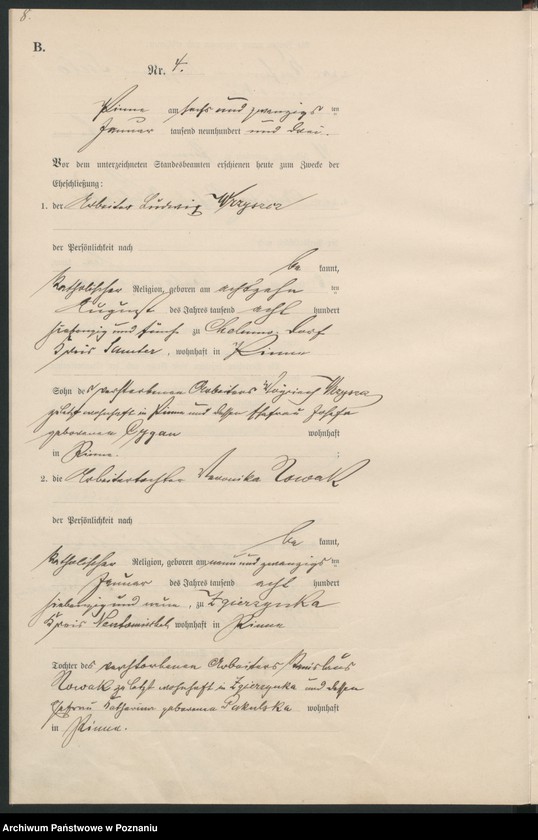 8.
B.
Nr. 4.
Pinne am sechs und zwanzigsten
Januar tausend neunhundert und drei.
Vor dem unterzeichneten Standesbeamten erschienen heute zum Zwecke der
Eheschließung:
1. der Arbeiter Ludwig
der Persönlichkeit nach
be kannt,
katholischer Religion, geboren am achtzehn ten
August des Jahres tausend acht hundert
siebenzig und fünf zu Dorf
Kreis Samter, wohnhaft in Pinne
Sohn des verstorbenen Arbeiters
zuletzt wohnhaft in Pinne und dessen Ehefrau Josefa
geborenen wohnhaft
in Pinne. ;
2. die Arbeitertochter Veronika Nowak
der Persönlichkeit nach
be kannt,
katholischer Religion, geboren am neun und zwanzigsten
Januar des Jahres tausend acht hundert
siebenzig und neun, zu Zgierzynka
Kreis Neutomischel, wohnhaft in Pinne
Tochter des verstorbenen Arbeiters
Nowak zuletzt wohnhaft in Zgierzynka und dessen
Ehefrau Katharina geborenen wohnhaft
in Pinne.
Archiwum Państwowe w Poznaniu